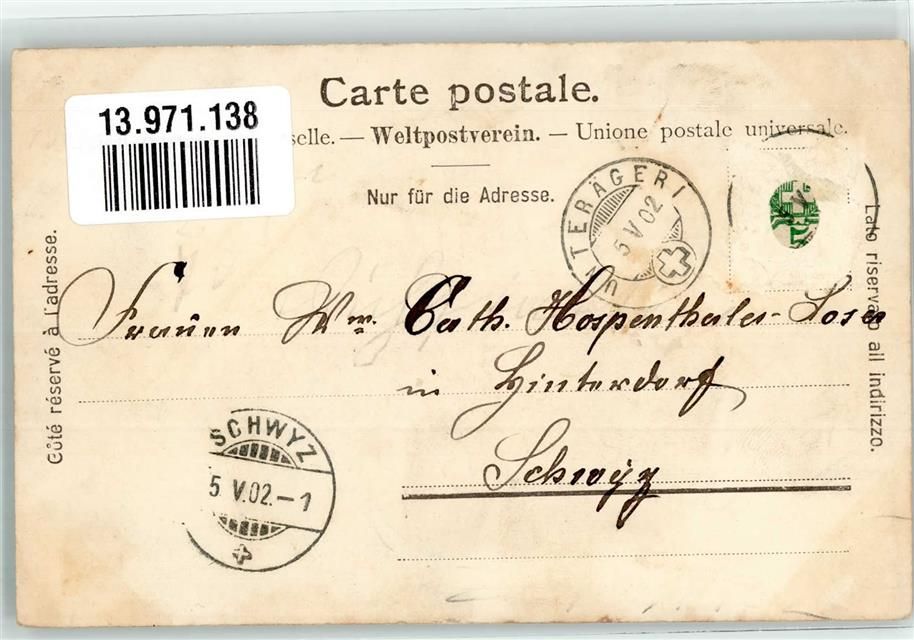 Carte postale.
13.971.138
selle. — Weltpostverein. — Unione postale universale.
Nur für die Adresse.
UNTERÄGERI
5 V 02
Côté réservé à l'adresse.
Lato riservato all indirizzo.
Frauen Ww. Cath. Hospenthaler-
in Hinterdorf
Schwyz
SCHWYZ
5. V. 02. – 1